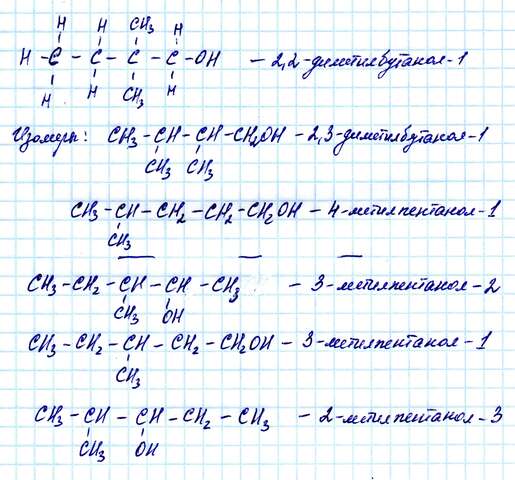 H H CH₃ H
H - C - C - C - C - OH - 2,2-диметилбутанол-1
H H CH₃ H
Изомеры: CH₃ - CH - CH - CH₂OH - 2,3-диметилбутанол-1
CH₃ CH₃
CH₃ - CH - CH₂ - CH₂ - CH₂OH - 4-метилпентанол-1
CH₃
CH₃ - CH₂ - CH - CH - CH₃ - 3-метилпентанол-2
CH₃ OH
CH₃ - CH₂ - CH - CH₂ - CH₂OH - 3-метилпентанол-1
CH₃
CH₃ - CH - CH - CH₂ - CH₃ - 2-метилпентанол-3
CH₃ OH